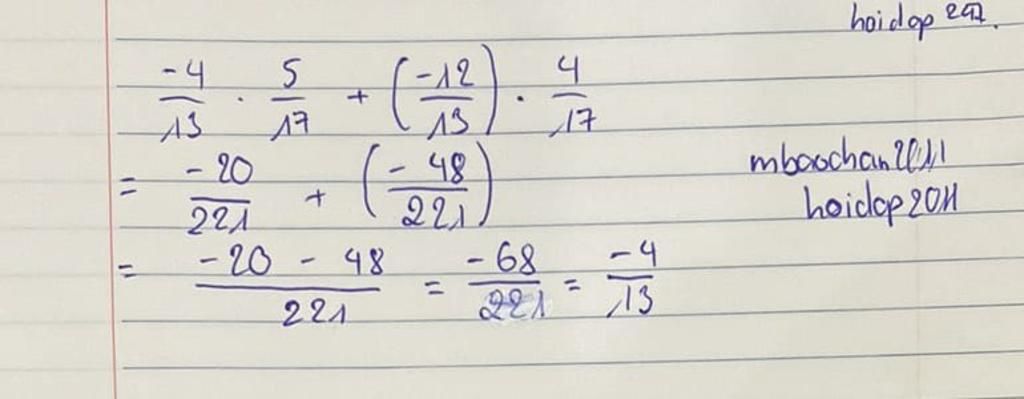 hoidap 247.
-4/13 . 5/17 + (-12/13) . 4/17
= -20/221 + (-48/221)
mbaochan2011
hoidap2011
= -20 - 48/221 = -68/221 = -4/13